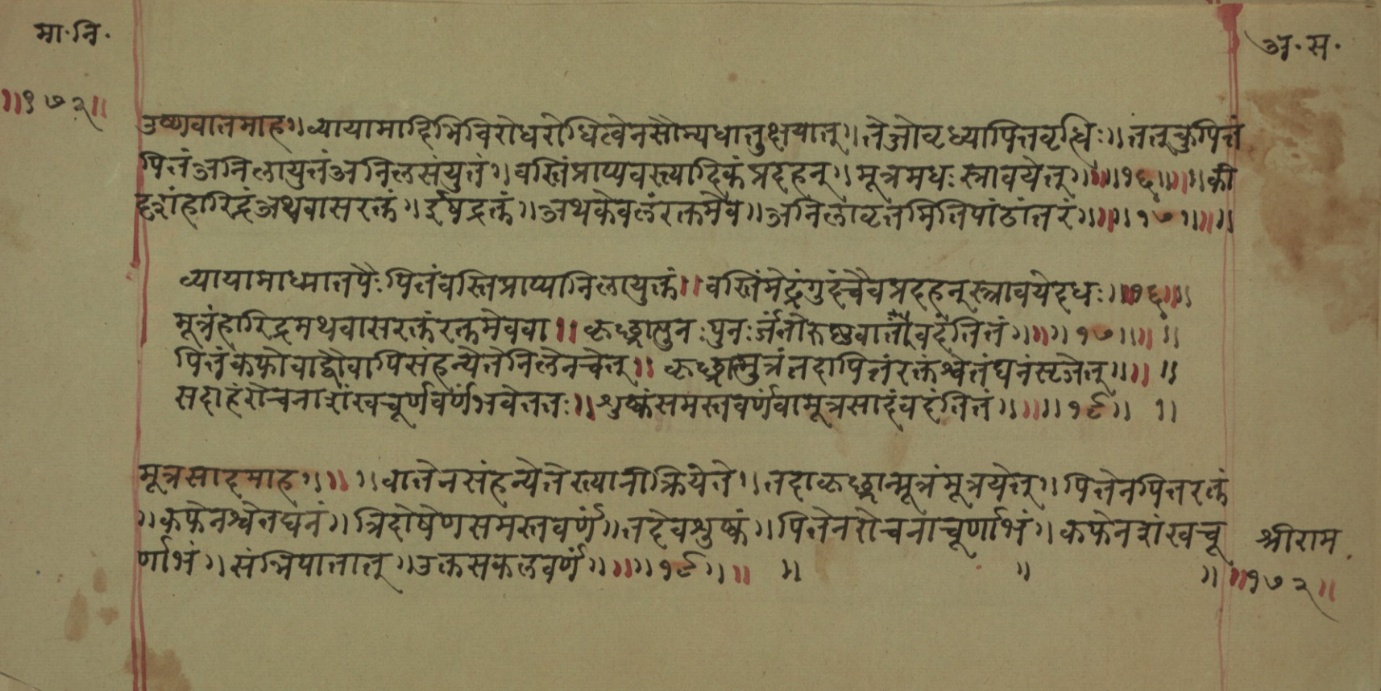 मा·नि·
अ·स·
॥१७२॥
उष्णवातमाह॥व्यायामादिभिविरोधरोधित्वेनसौम्यधातुक्षयात्॥तेजोवृध्यापित्तवृद्धिः॥तत्कुपितं
पितंअनिलायुतंअनिलसंयुतं॥वस्तिंप्राप्यवस्त्यादिकंप्रदहन्॥मूत्रमधःस्त्रावयेत्॥॥१६॥॥की
दृशंहारिद्रंअथवासरक्तं॥ईषद्रक्तं॥अथकेवलंरक्तमेव॥अनिलावृतमितिपाठांतरं॥॥१७॥॥
व्यायामाध्मातपैःपितंवस्तिप्राप्यानिलायुक्तं॥वस्तिंमेढ्रंगुदंचैवप्रदहन्स्त्रावयेदधः॥१६॥॥
मूत्रंहारिद्रमथवासरक्तंरक्तमेववा॥कृछ्रात्पुनःपुनःर्जंतोरुष्णवातंवदंतितं॥॥१७॥॥
पितंकफोवाद्वौवापिसंहन्येतेनिलेनचेत्॥कृछ्रान्मुत्रंतदापितंरक्तंश्वेतंघनंसृजेत्॥॥॥
सदाहंरोचनाशंखचूर्णवर्णंभवेततः॥शुष्कंसमस्तवर्णंवामूत्रसादंवदंतितं॥॥१९॥॥
मूत्रसादमाह॥॥॥वातेनसंहन्येतेस्त्यानीक्रियेते॥तदाकृछ्रान्मूत्रंमूत्रयेत्॥पितेनपितरक्तं
॥कफेनश्वेतघनं॥त्रिदोषेणसमस्तवर्णं॥तदेवशुष्कं॥पितेनरोचनाचूर्णाभं॥कफेनशंखचू
र्णाभं॥संन्निपातात्॥उक्तसकलवर्णं॥॥१९॥॥ ॥ ॥ ॥
श्रीराम
॥१७२॥